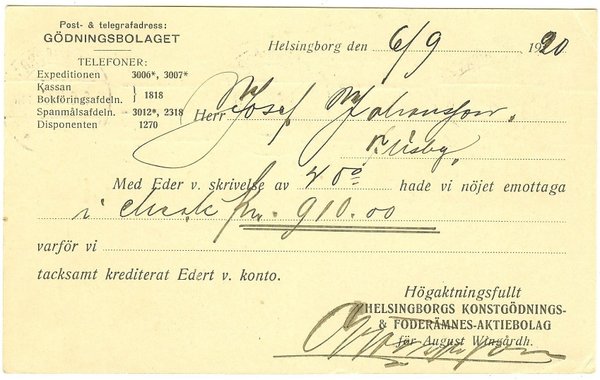 Post- & telegrafadress:
GÖDNINGSBOLAGET
Helsingborg den 6/9 1920
TELEFONER:
Expeditionen 3006*, 3007*
Kassan
Bokföringsafdeln. } 1818
Spanmålsafdeln. 3012*, 2318
Disponenten 1270
Herr Josef Johansson,
Med Eder v. skrivelse av 4 ds hade vi nöjet emottaga
i check kr. 910.00
varför vi
tacksamt krediterat Edert v. konto.
Högaktningsfullt
HELSINGBORGS KONSTGÖDNINGS-
& FODERÄMNES-AKTIEBOLAG
för August Wingårdh.